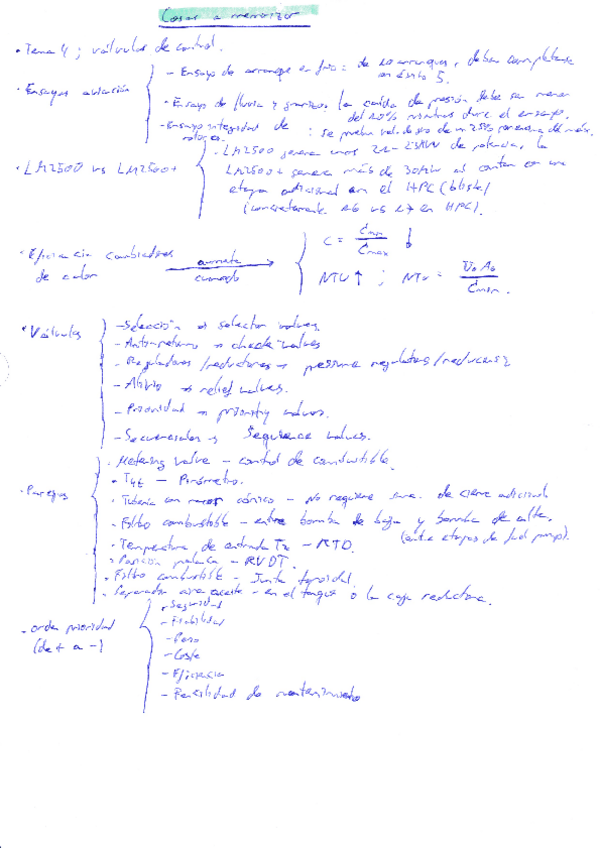 Cosas a memorizar
• Tema 4; válvulas de control.
• Ensayos aviación
- Ensayo de arranque en frío: de 10 arranques, deben completarse con éxito 5.
- Ensayo de lluvia y granizo: la caída de presión debe ser menor del 10% mientras dure el ensayo.
- Ensayo integridad de rotores: se prueba velocidades de un 25% por encima del máx.
• LM2500 vs LM2500+
• LM2500 genera unos 22-25MW de potencia, la LM2500+ genera más de 30MW al contar con una etapa adicional en el HPC (blisk) (concretamente 16 vs 17 en HPC).
• Eficiencia cambiadores de calor
aumenta
cuando
C = Cmin / Cmax ↓
NTU ↑ ; NTU = U₀A₀ / Cmin.
• Válvulas
- Selección → selector valves.
- Antirretorno → check valves
- Reguladoras/reductoras → pressure regulators/reducers
- Alivio → relief valves.
- Prioridad → priority valves.
- Secuenciales → Sequence valves.
• Parejas
• Metering valve - control de combustible.
• T4t - Pirómetro.
• Tubería con racor cónico - No requiere de cierre adicional
• Filtro combustible - entre bomba de baja y bomba de alta. (entre etapas de fuel pump).
• Temperatura de entrada T2 - RTD.
• Posición palanca - RVDT.
• Filtro combustible - Junta toroidal.
• Separador aire aceite - en el tanque o la caja reductora.
- orden prioridad (de + a -)
• Seguridad
- Fiabilidad
- Peso
- Coste
- Eficiencia
- de mantenimiento